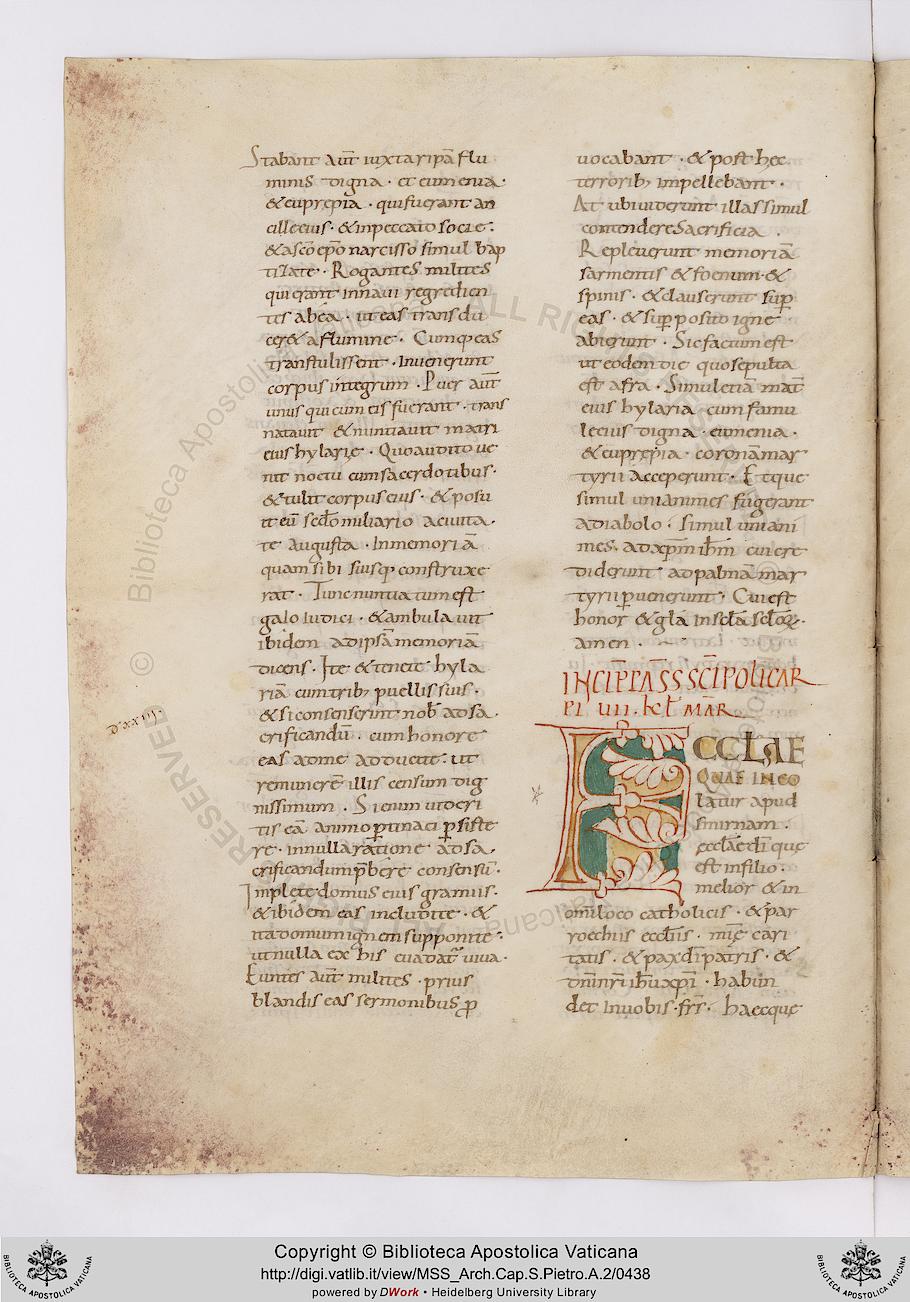 Stabant aūt iuxta ripā flu
minis digna · et eumenia ·
& euprepia · qui fuerant an
cille eius · & in peccato socie ·
& a scō epō narcisso simul bap
tizate · Rogantes milites
qui erant in naui regredien
tes ab ea · ut eas transdu
cer& a flumine · Cumq; eas
transtulissent · Inuenerunt
corpus integrum · Puer aūt
unus qui cum eis fuerant · trans
natauit & nuntiauit matri
eius hylarie · Quo audito ue
nit noctu cum sacerdotibus ·
& tulit corpus eius · & posu
it eū scdo miliario a ciuita
te augusta · In memoriā
quam sibi suisq; construxe
rat · Tunc nuntiatum est
gaio iudici · & ambulauit
ibidem ad ipsā memoriā
dicens · Ite & tenete hyla
riā cum trib; puellis suis ·
& si consenserint nob̄ ad sa
crificandū · cum honore
eas ad me adducite · ut
remunerē illis censum dig
nissimum · Si eum uideri
tis eā animo ptinaci psiste
re · in nulla ratione ad sa
crificandum p̄bere consensū ·
Implete domus eius gramiis ·
& ibidem eas includite · &
ita domum ignem supponite ·
ut nulla ex his euadat uiua ·
Euntes aūt milites · prius
blandis eas sermonibus p
D. xxiii.
uocabant · & post hec
terrorib; impellebant ·
At ubi uiderunt illas simul
contendere sacrificia ·
Repleuerunt memoriā
sarmentis & foenum · &
spinis · & clauserunt sup
eas · & supposito igne
abierunt · Sic factum est
ut eodem die quo sepulta
est afra · Simul etiā mat̄
eius hylaria cum famu
le eius digna · eumenia ·
& euprepia · coronā mar
tyrii acceperunt · Et que
simul unianimes fugerant
a diabolo · simul uniani
mes · ad xp̄m ih̄m cui cre
diderunt ad palmā mar
tyrii puenerunt · Cui est
honor & gl̄a in sc̄la sc̄lorꝝ ·
amen ·
INCIP PASS SCI POLICAR
PI VII · KL MAR
ECCLAE
QUAE INCO
latur apud
smirnam ·
eccl̄ae dī que
est in filio
melior & in
omi loco catholicis · & par
roechiis eccl̄is · mīe cari
tatis · & pax dī patris · &
dn̄i nr̄i ih̄u xp̄i · habun
det in uobis · frs̄ · haec que
Copyright © Biblioteca Apostolica Vaticana
http://digi.vatlib.it/view/MSS_Arch.Cap.S.Pietro.A.2/0438
powered by DWork • Heidelberg University Library